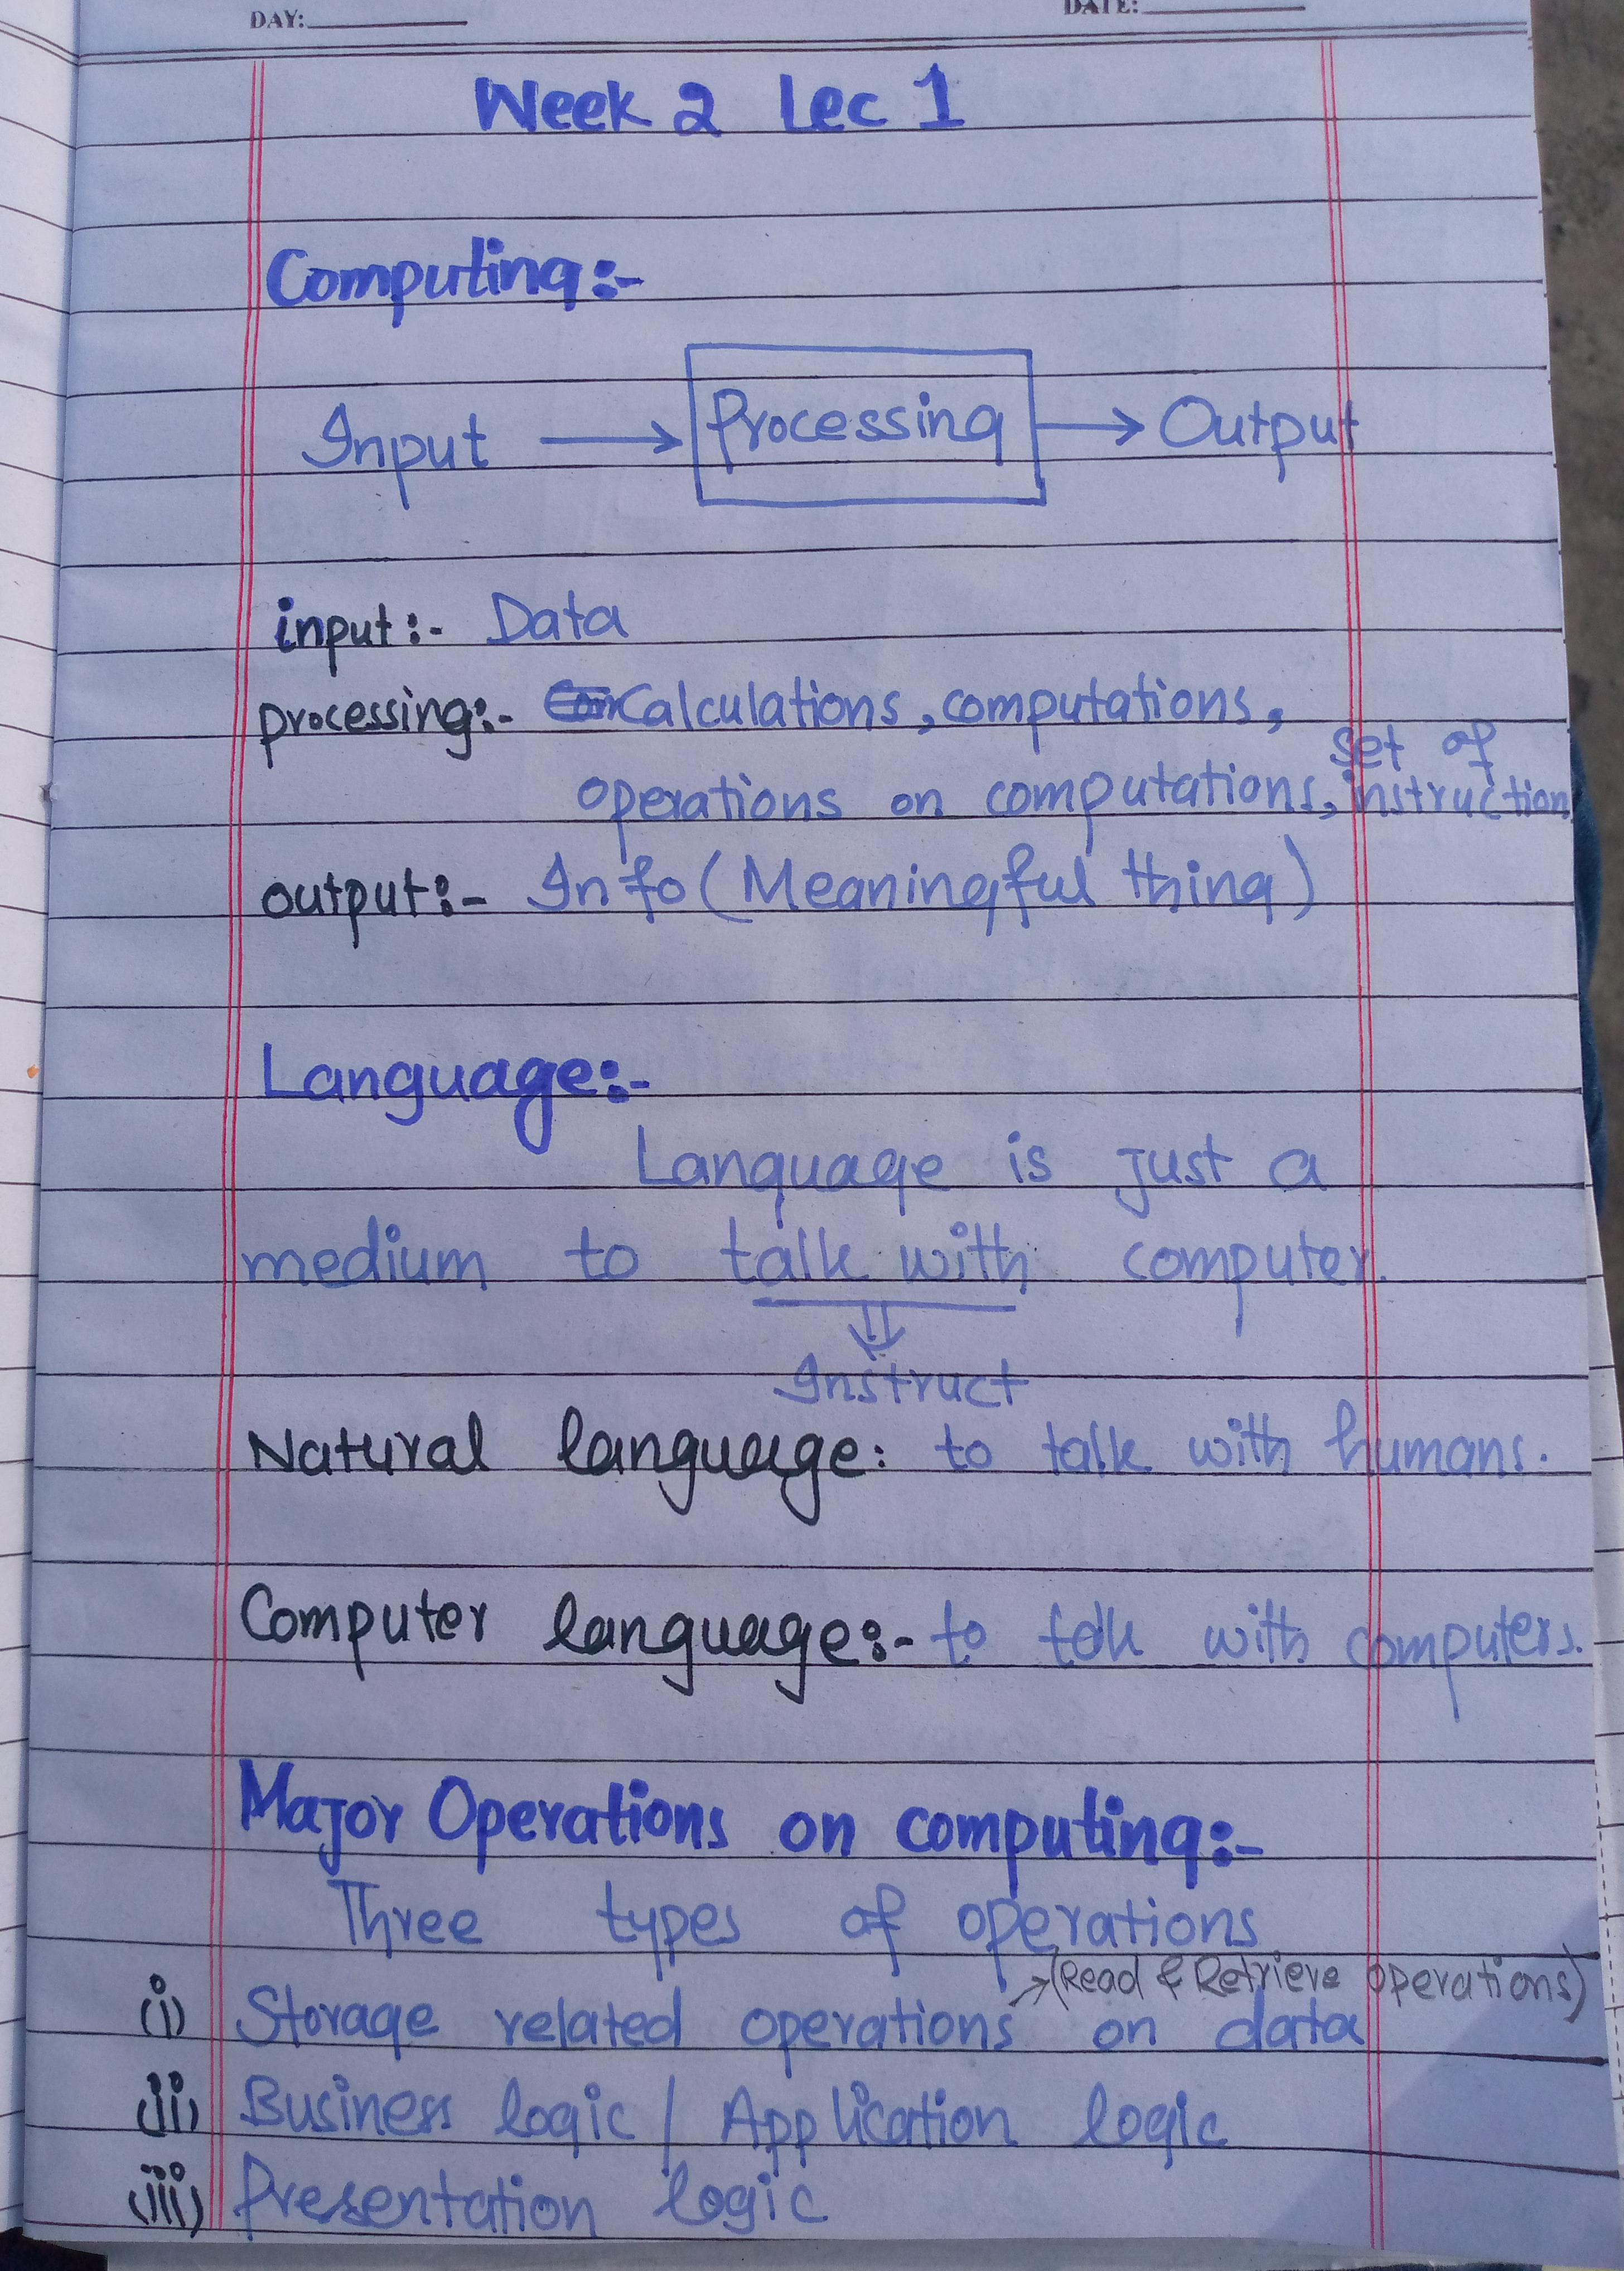 DAY: DATE:
Week 2 Lec 1
Computing:-
Input → Processing → Output
input:- Data
processing:- Calculations, computations,
operations on computations, set of instruction
output:- Info (Meaningful thing)
Language:-
Language is just a
medium to talk with computer.
Instruct
Natural language: to talk with humans.
Computer language:- to talk with computers.
Major Operations on computing:-
Three types of operations
→(Read & Retrieve operations)
(i) Storage related operations on data
(ii) Business logic / Application logic
(iii) Presentation logic